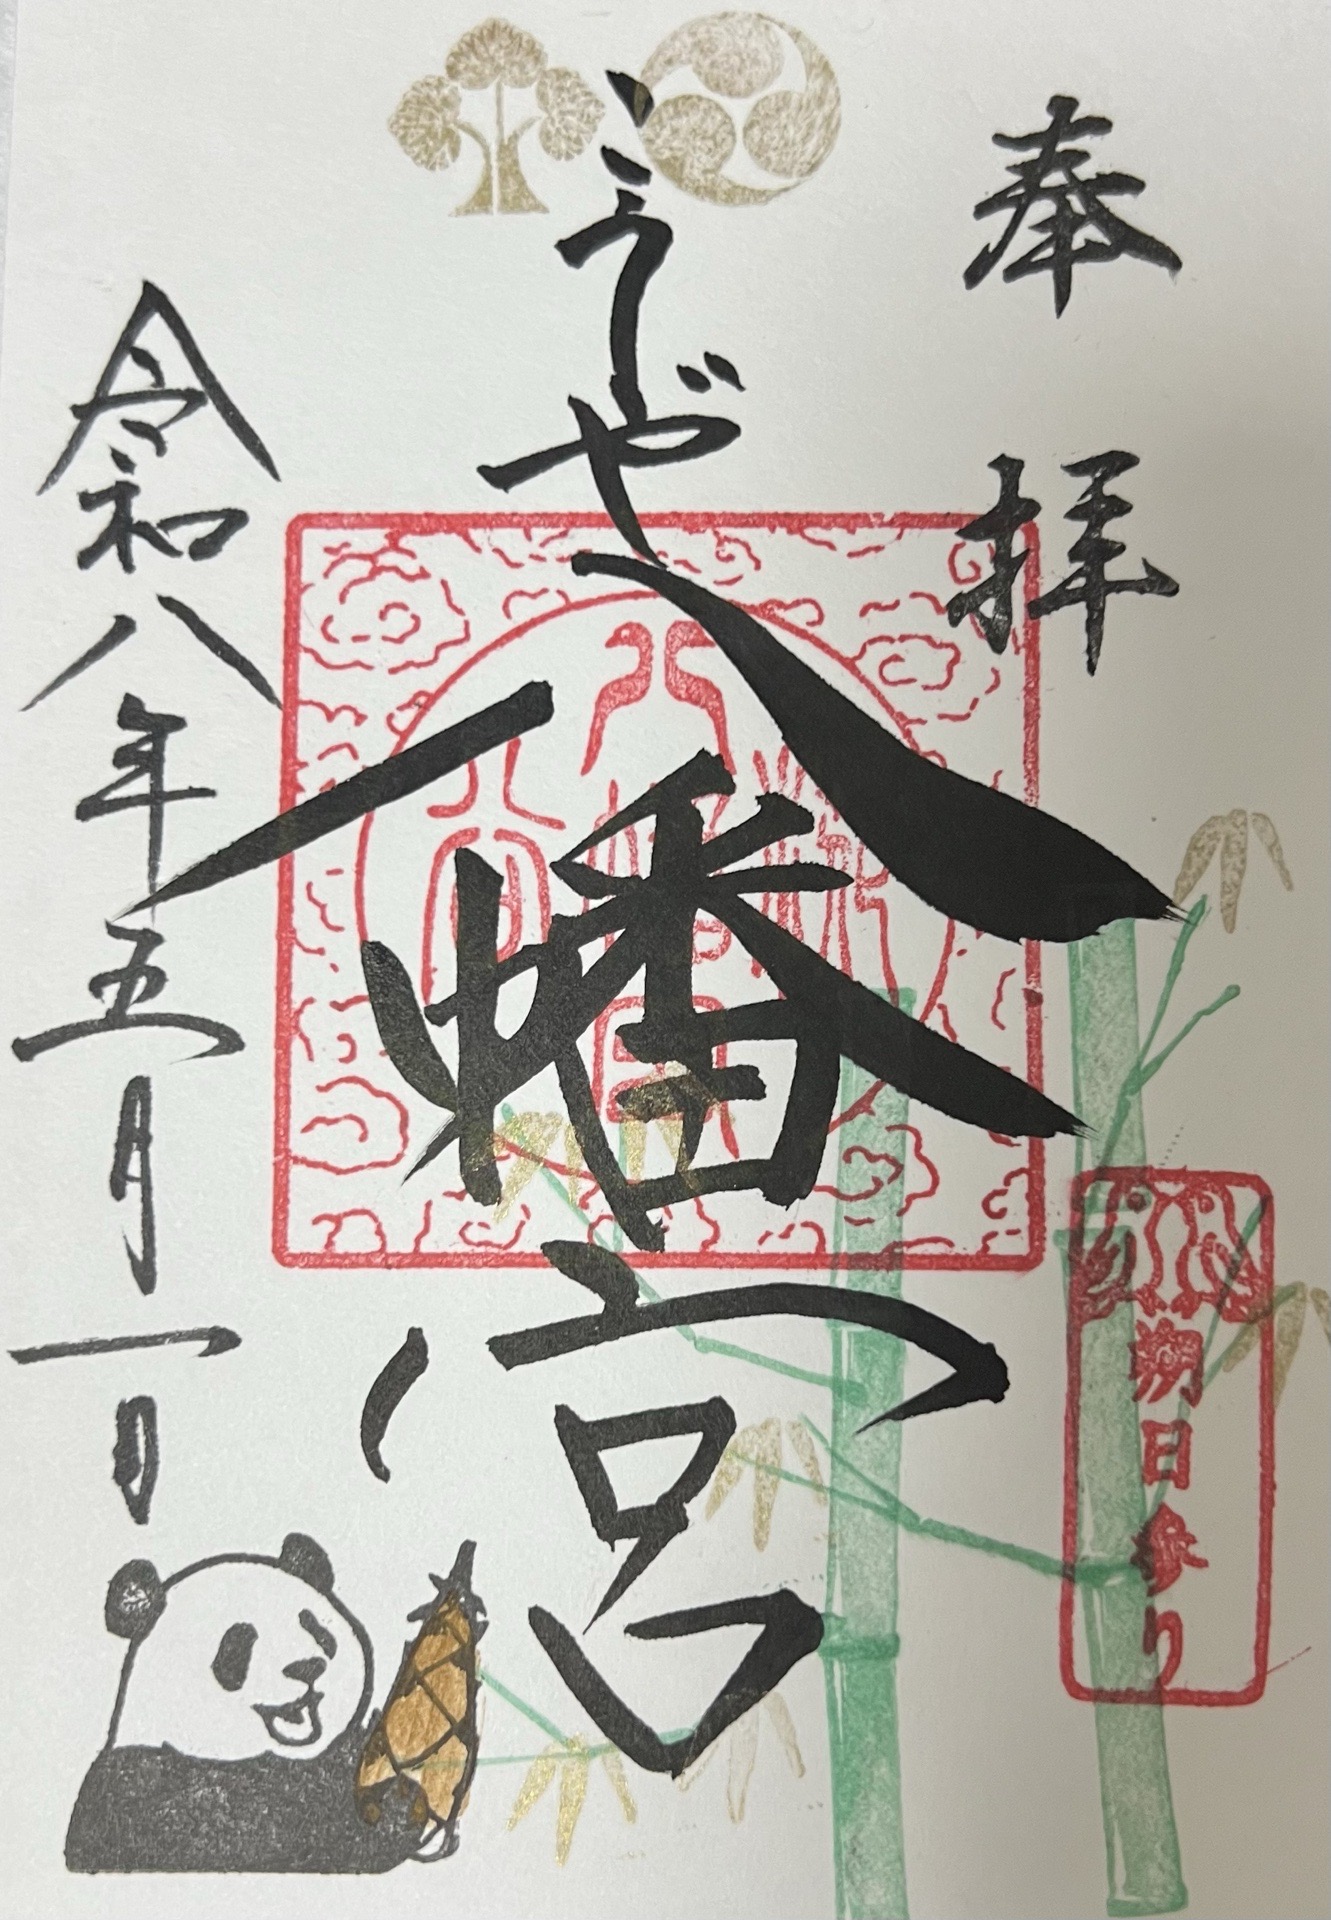 奉拝
朔日参り
こうじや八幡宮
令和八年五月一日